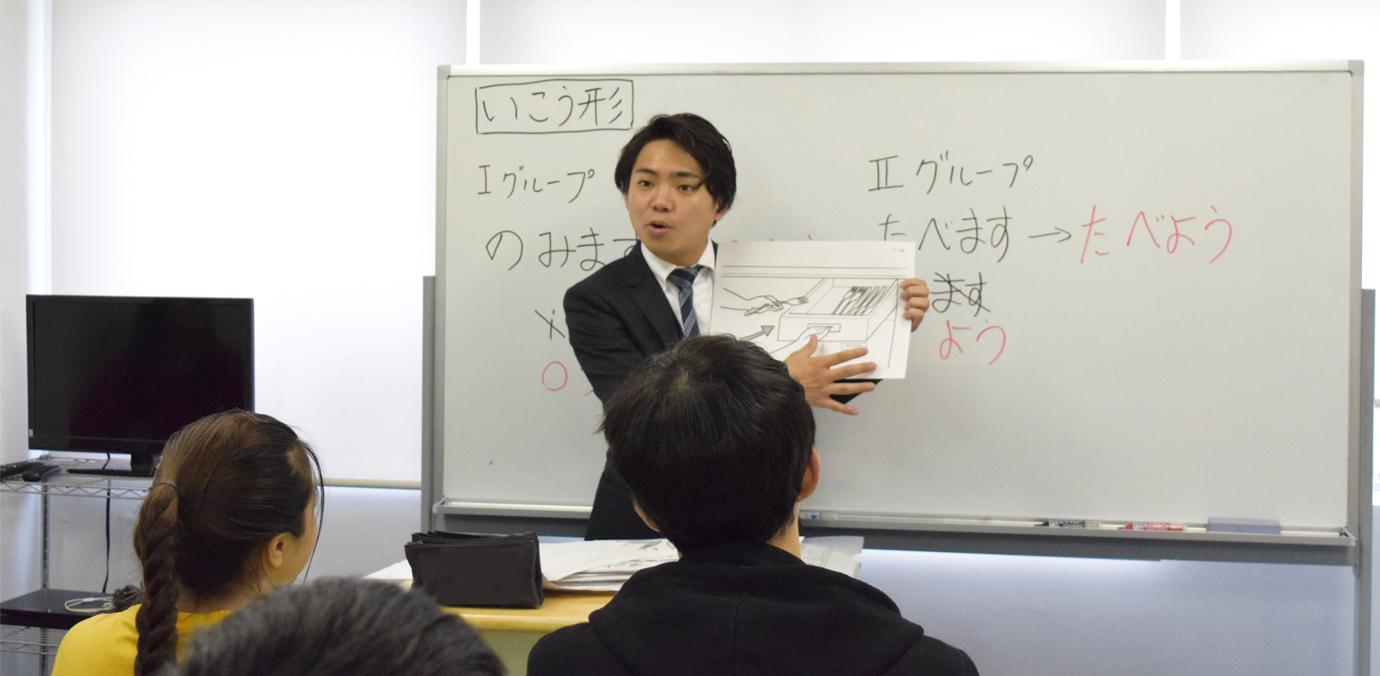 いこう形
Iグループ
のみます
IIグループ
たべます→たべよう
ます
よう